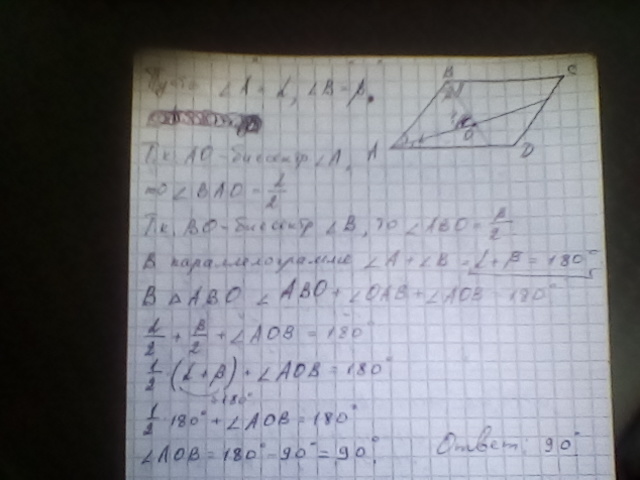 Пусть ∠A = α, ∠B = β.
Т.к. AO - биссектр ∠A,
то ∠BAO = α/2
Т.к. BO - биссектр ∠B, то ∠ABO = β/2
В параллелограмме ∠A + ∠B = α + β = 180°
В △ABO ∠ABO + ∠OAB + ∠AOB = 180°
α/2 + β/2 + ∠AOB = 180°
1/2 (α + β) + ∠AOB = 180°
=180°
1/2 · 180° + ∠AOB = 180°
∠AOB = 180° - 90° = 90°
Ответ: 90°
B
C
A
O
D